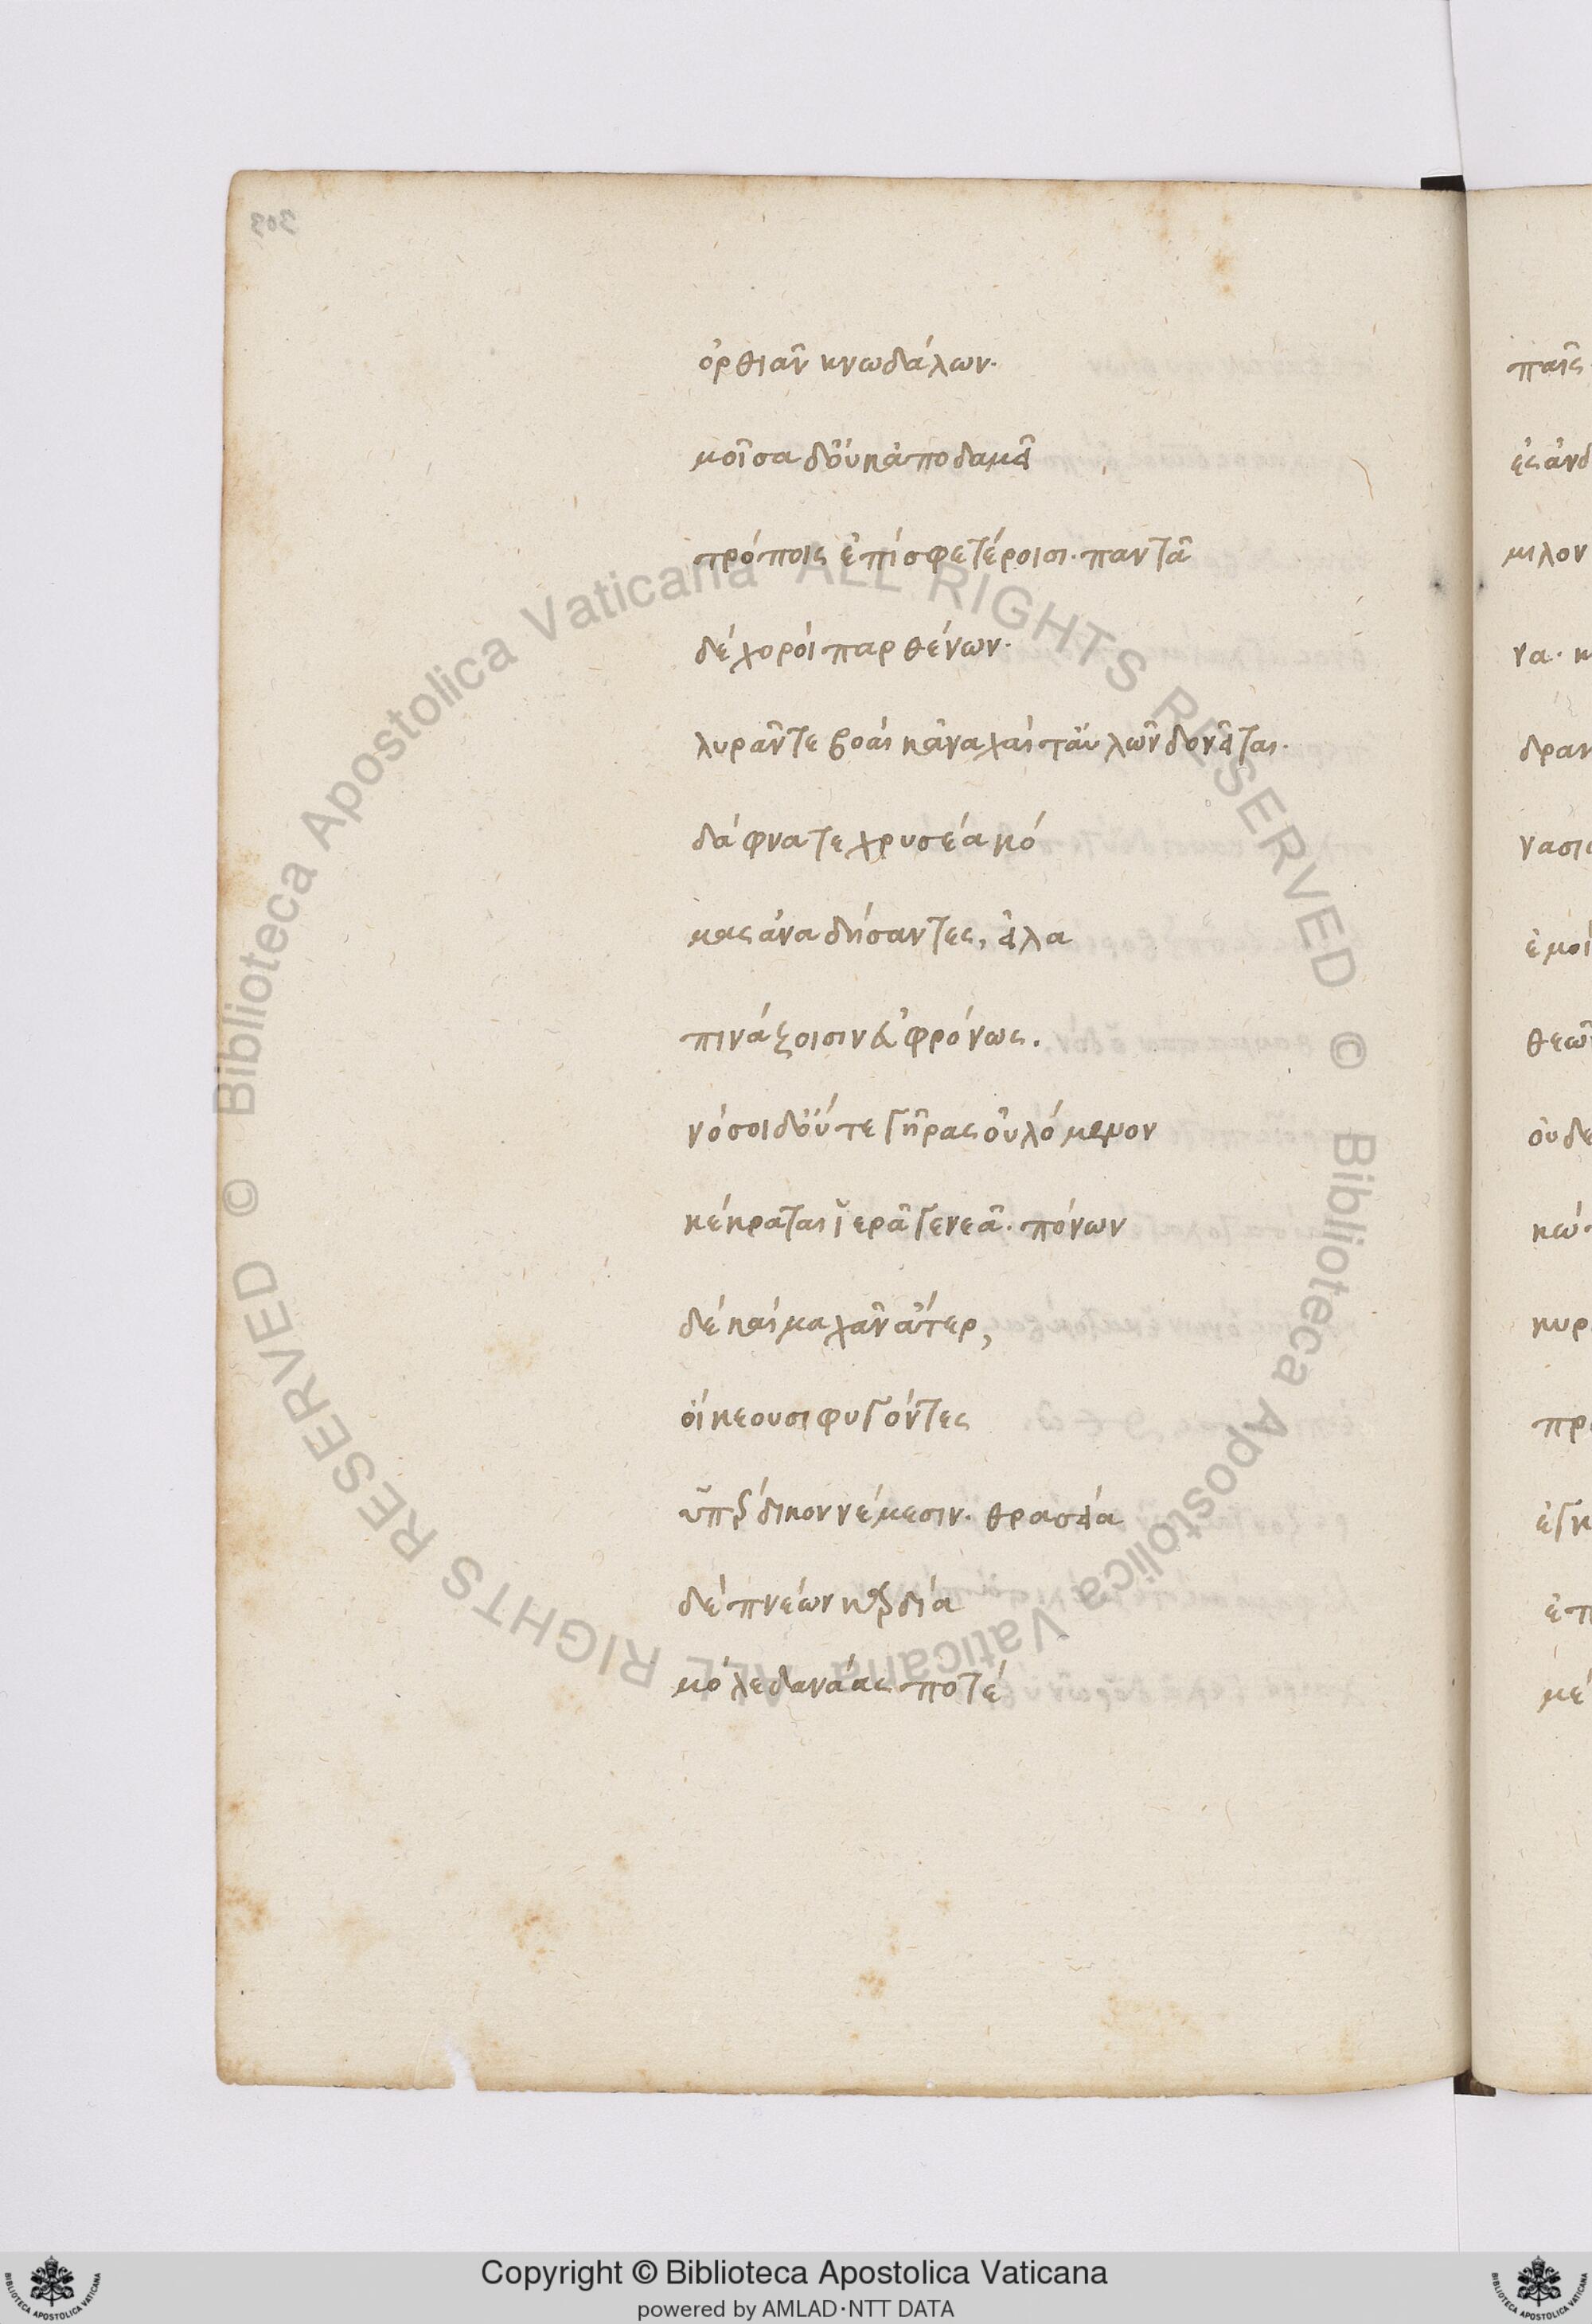 303
ὀρθιᾶν κνωδάλων·
μοῖσα δ' οὐκ ἀποδαμεῖ
τρόποις ἐπὶ σφετέροισι· παντᾶ
δὲ χοροὶ παρθένων·
λυρᾶν τε βοαὶ καναχαί τ' αὐλῶν δονεῖται·
δάφνα τε χρυσέα κό
μας ἀναδήσαντες, εἰλα
πινάζοισιν εὐφρόνως.
νόσοι δ' οὔτε γῆρας οὐλόμενον
κέκραται ἱερᾶ γενεᾶ· πόνων
δὲ καὶ μαχᾶν ἄτερ,
οἰκέουσι φυγόντες
ὑπέρδικον νέμεσιν· θρασεία
δὲ πνέων καρδία
μόλε δανάας ποτέ
παῖς
ἐς ἀνδ
μιλον
να· κ
δραν
νασι
ἐμοὶ
θεῶν
οὐδε
κώ
κυρ
πρ
ἐγκ
ἐπ
μέ
© Biblioteca Apostolica Vaticana ALL RIGHTS RESERVED © Biblioteca Apostolica Vaticana ALL RIGHTS RESERVED
Copyright © Biblioteca Apostolica Vaticana
powered by AMLAD·NTT DATA
BIBLIOTECA APOSTOLICA VATICANA
BIBLIOTECA APOSTOLICA VATICANA